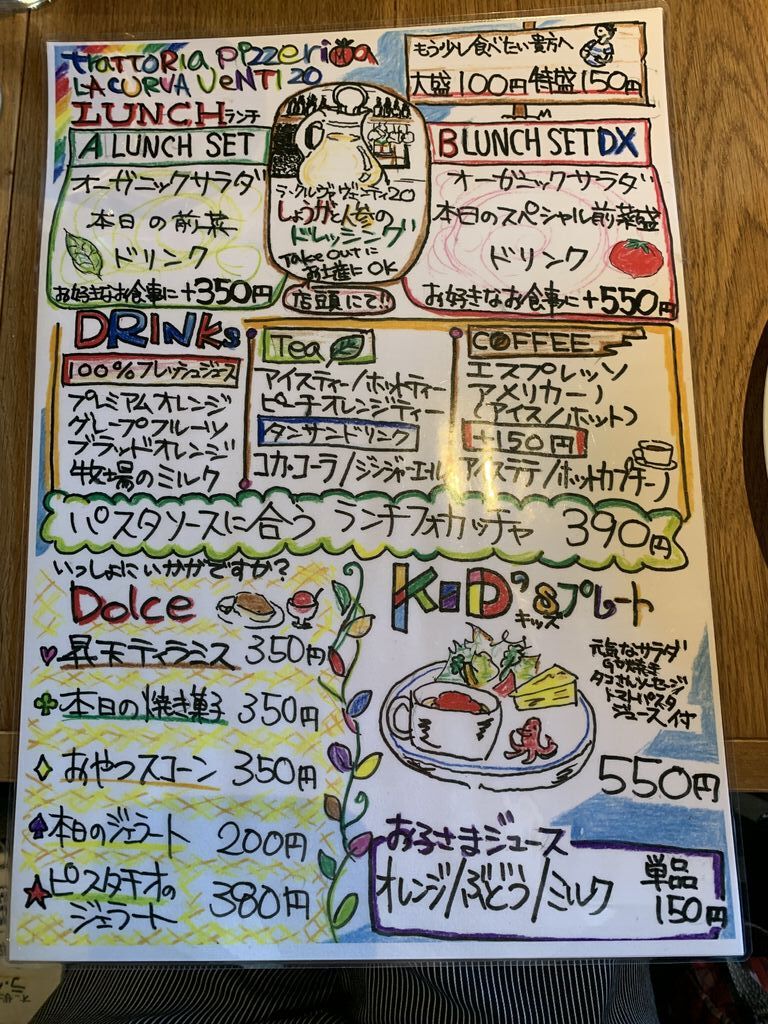 trattoria pizzeria
LA CURVA VENTI 20
LUNCH ランチ
もう少し食べたい貴方へ
大盛100円 特盛150円
A LUNCH SET
オーガニックサラダ
本日の前菜
ドリンク
お好きなお食事に+350円
ラ・クルヴァヴェンティ20
しょうがと人参の
ドレッシング
Take outに
お土産にOK
店頭にて!!
B LUNCH SET DX
オーガニックサラダ
本日のスペシャル前菜盛
ドリンク
お好きなお食事に+550円
DRINKs
100%フレッシュジュース
プレミアムオレンジ
グレープフルーツ
ブラッドオレンジ
牧場のミルク
Tea
アイスティー/ホットティー
ピーチオレンジティー
タンサンドリンク
コカ・コーラ/ジンジャーエール
COFFEE
エスプレッソ
アメリカーノ
(アイス/ホット)
+150円
アイスラテ/ホットカプチーノ
パスタソースに合う ランチフォカッチャ 390円
いっしょにいかがですか?
Dolce
昇天ティラミス 350円
本日の焼き菓子 350円
おやつスコーン 350円
本日のジェラート 200円
ピスタチオの
ジェラート 380円
KID'Sプレート
キッズ
元気なサラダ
タコさんソーセージ
トマトパスタ
ジュース付
550円
お子さまジュース
オレンジ/ぶどう/ミルク
単品
150円